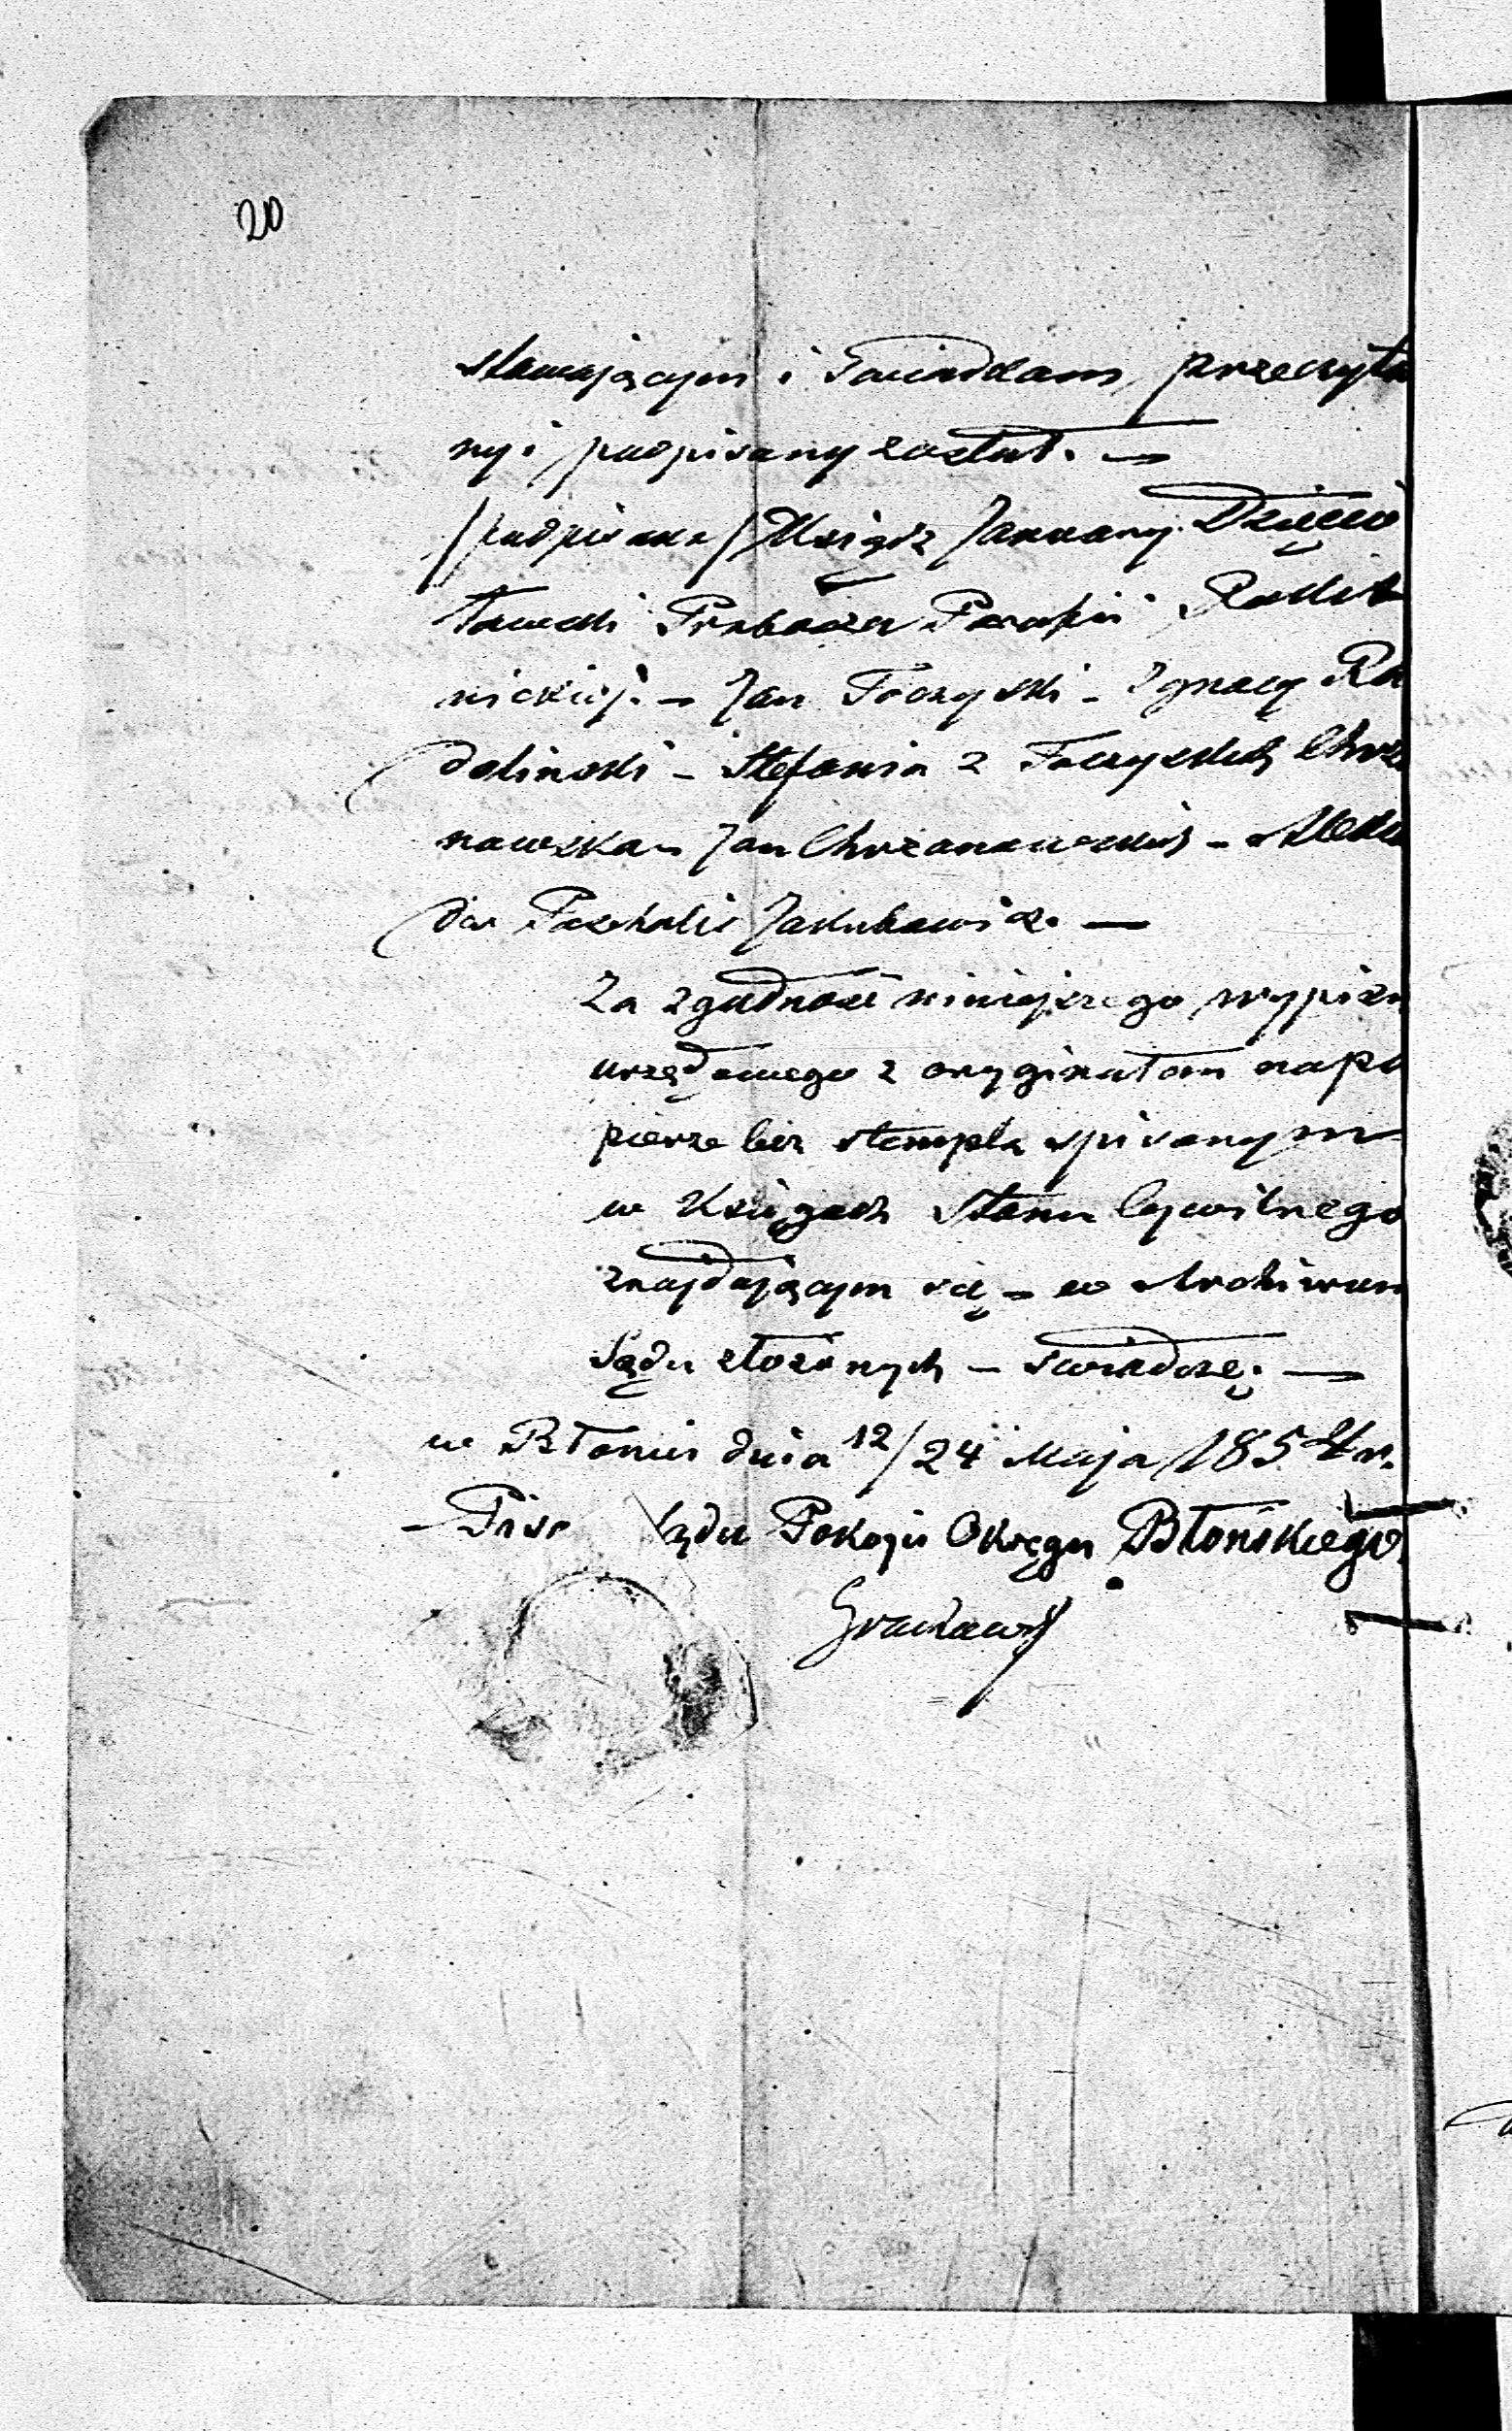 20
stawającym i Świadkom, przeczyta
ny i podpisany został. —
/podpisano/ Ksiądz January Dzięcio
łowski Proboszcz Parafii Rokit
nickiej. — Jan Toczyski - Ignacy Ra
doliński - Stefania z Toczyskich Chrza
nowska - Jan Chrzanowski - Alexan
der Paschalis Jakubowicz. —
Za zgodność niniejszego wypisu
urzędowego z oryginałem na pa
pierze bez stempla spisanym
w Księgach Stanu Cywilnego
znajdującym się - w Archiwum
Sądu złożonych - świadczę. —
w Błoniu dnia 12/24 Maja 1854 r.
- Pisa Sądu Pokoju Okręgu Błońskiego.